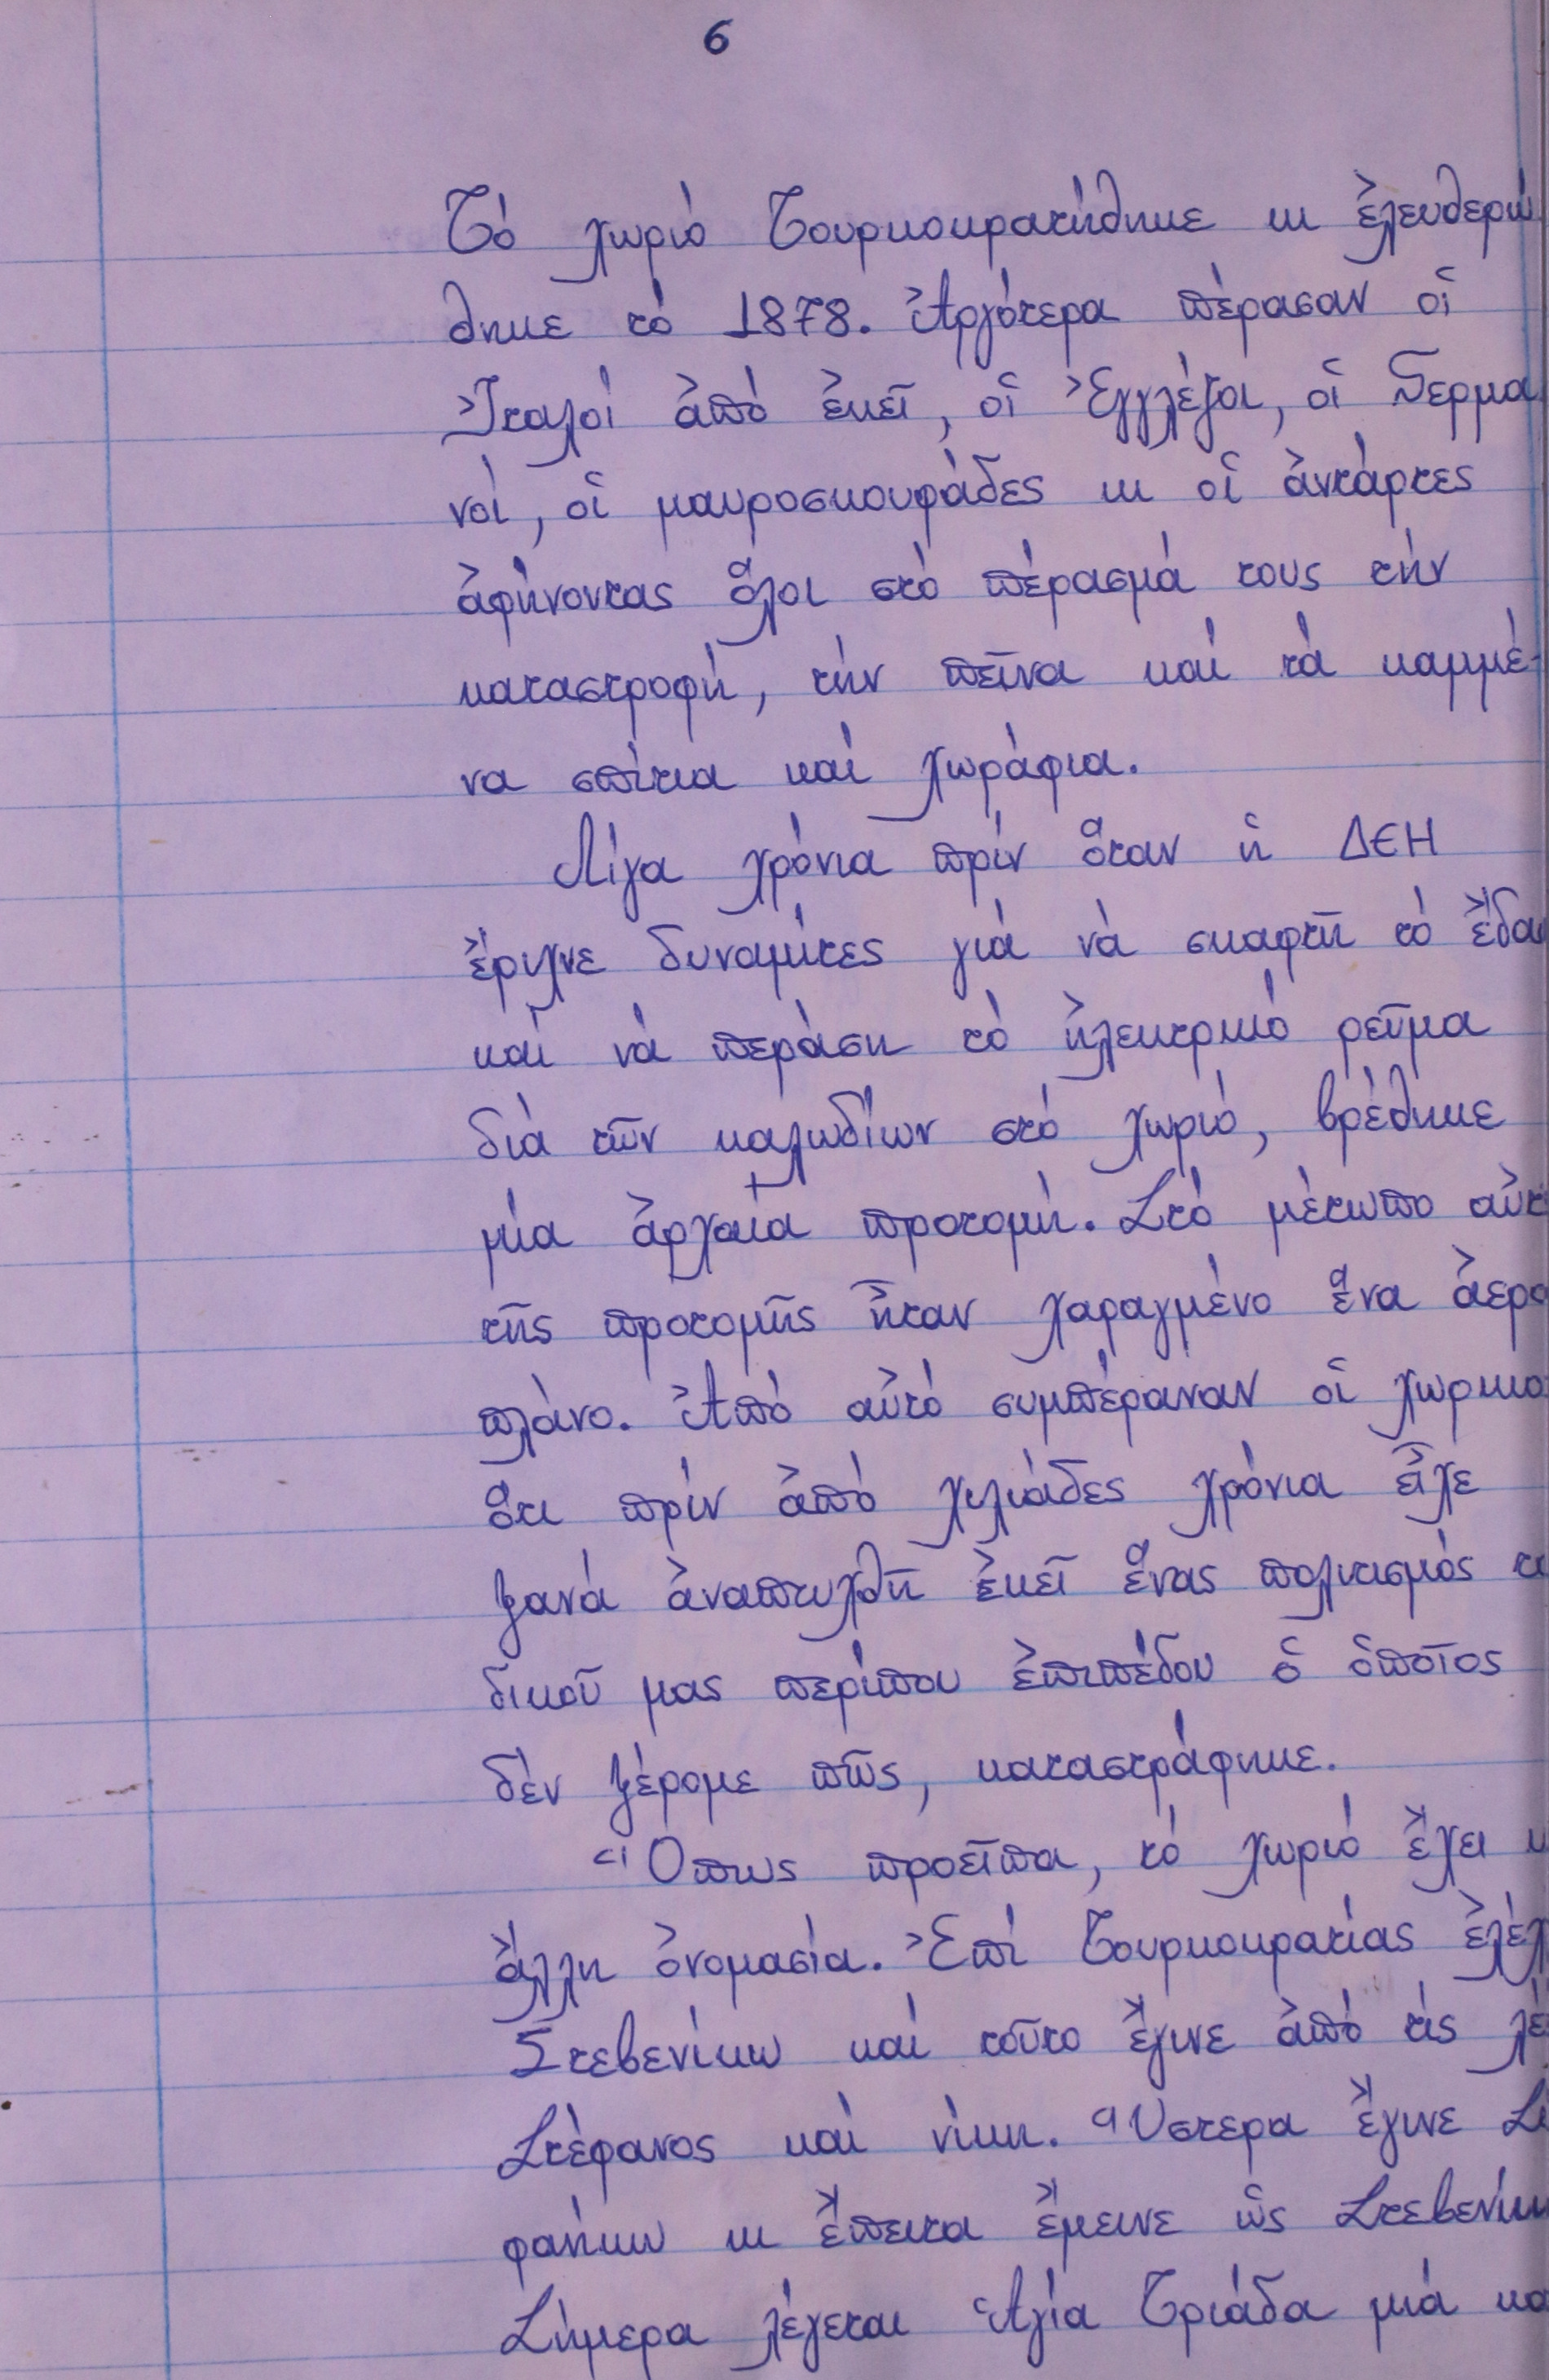 6
Τό χωριό Τουρκοκρατήθηκε κι ἐλευθερώ
θηκε τό 1878. Ἀργότερα πέρασαν οἱ
Ἰταλοί ἀπό ἐκεῖ, οἱ Ἐγγλέζοι, οἱ Γερμα
νοί, οἱ μαυροσκουφάδες κι οἱ ἀντάρτες
ἀφήνοντας ὅλοι στό πέρασμά τους τήν
καταστροφή, τήν πεῖνα καί τά καμμέ-
να σπίτια καί χωράφια.
Λίγα χρόνια πρίν ὅταν ἡ ΔΕΗ
ἔριχνε δυναμίτες γιά νά σκαφτῆ τό ἔδα
καί νά περάση τό ἠλεκτρικό ρεῦμα
διά τῶν καλωδίων στό χωριό, βρέθηκε
μία ἀρχαία προτομή. Στό μέτωπο αὐτ
τῆς προτομῆς ἦταν χαραγμένο ἕνα ἀερο
πλάνο. Ἀπό αὐτό συμπέραναν οἱ χωρικο
ὅτι πρίν ἀπό χιλιάδες χρόνια εἶχε
ξανά ἀναπτυχθῆ ἐκεῖ ἕνας πολιτισμός
δικοῦ μας περίπου ἐπιπέδου ὁ ὁποῖος
δέν ξέρομε πῶς, καταστράφηκε.
Ὅπως προεῖπα, τό χωριό ἔχει
ἄλλη ὀνομασία. Ἐπί Τουρκοκρατίας ἐλέγ
Στεβενίκω καί τοῦτο ἔγινε ἀπό τίς λέ
Στέφανος καί νίκη. Ὕστερα ἔγινε Στ
φανίκω κι ἔπειτα ἔμεινε ὡς Στεβενίκω
Σήμερα λέγεται Ἁγία Τριάδα μιά κα